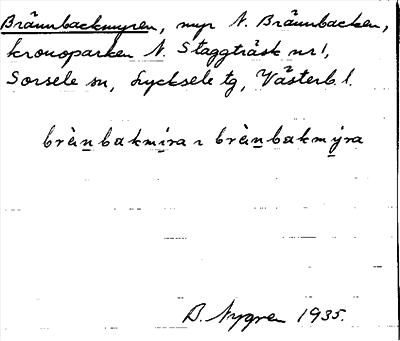 Brännbackmyren, myr N. Brännbacken,
kronoparken N. Staggträsk nr 1,
Sorsele sn, Lycksele tg, Västerb. l.
brànbakmíra ı brànbakmýra
B. Nygren 1935.